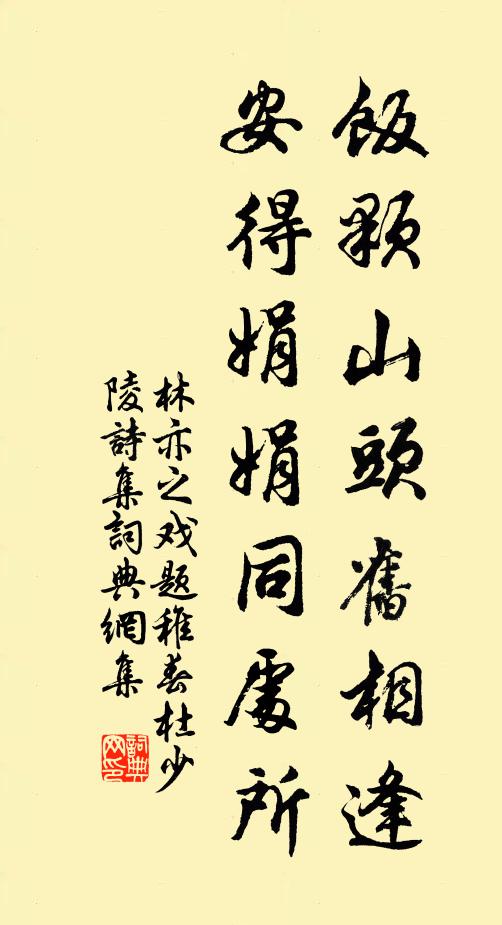 飯顆山頭舊相逢
安得娟娟同處所
林亦之戏題稚春杜少
陵詩集詞典網集
詞典
网印